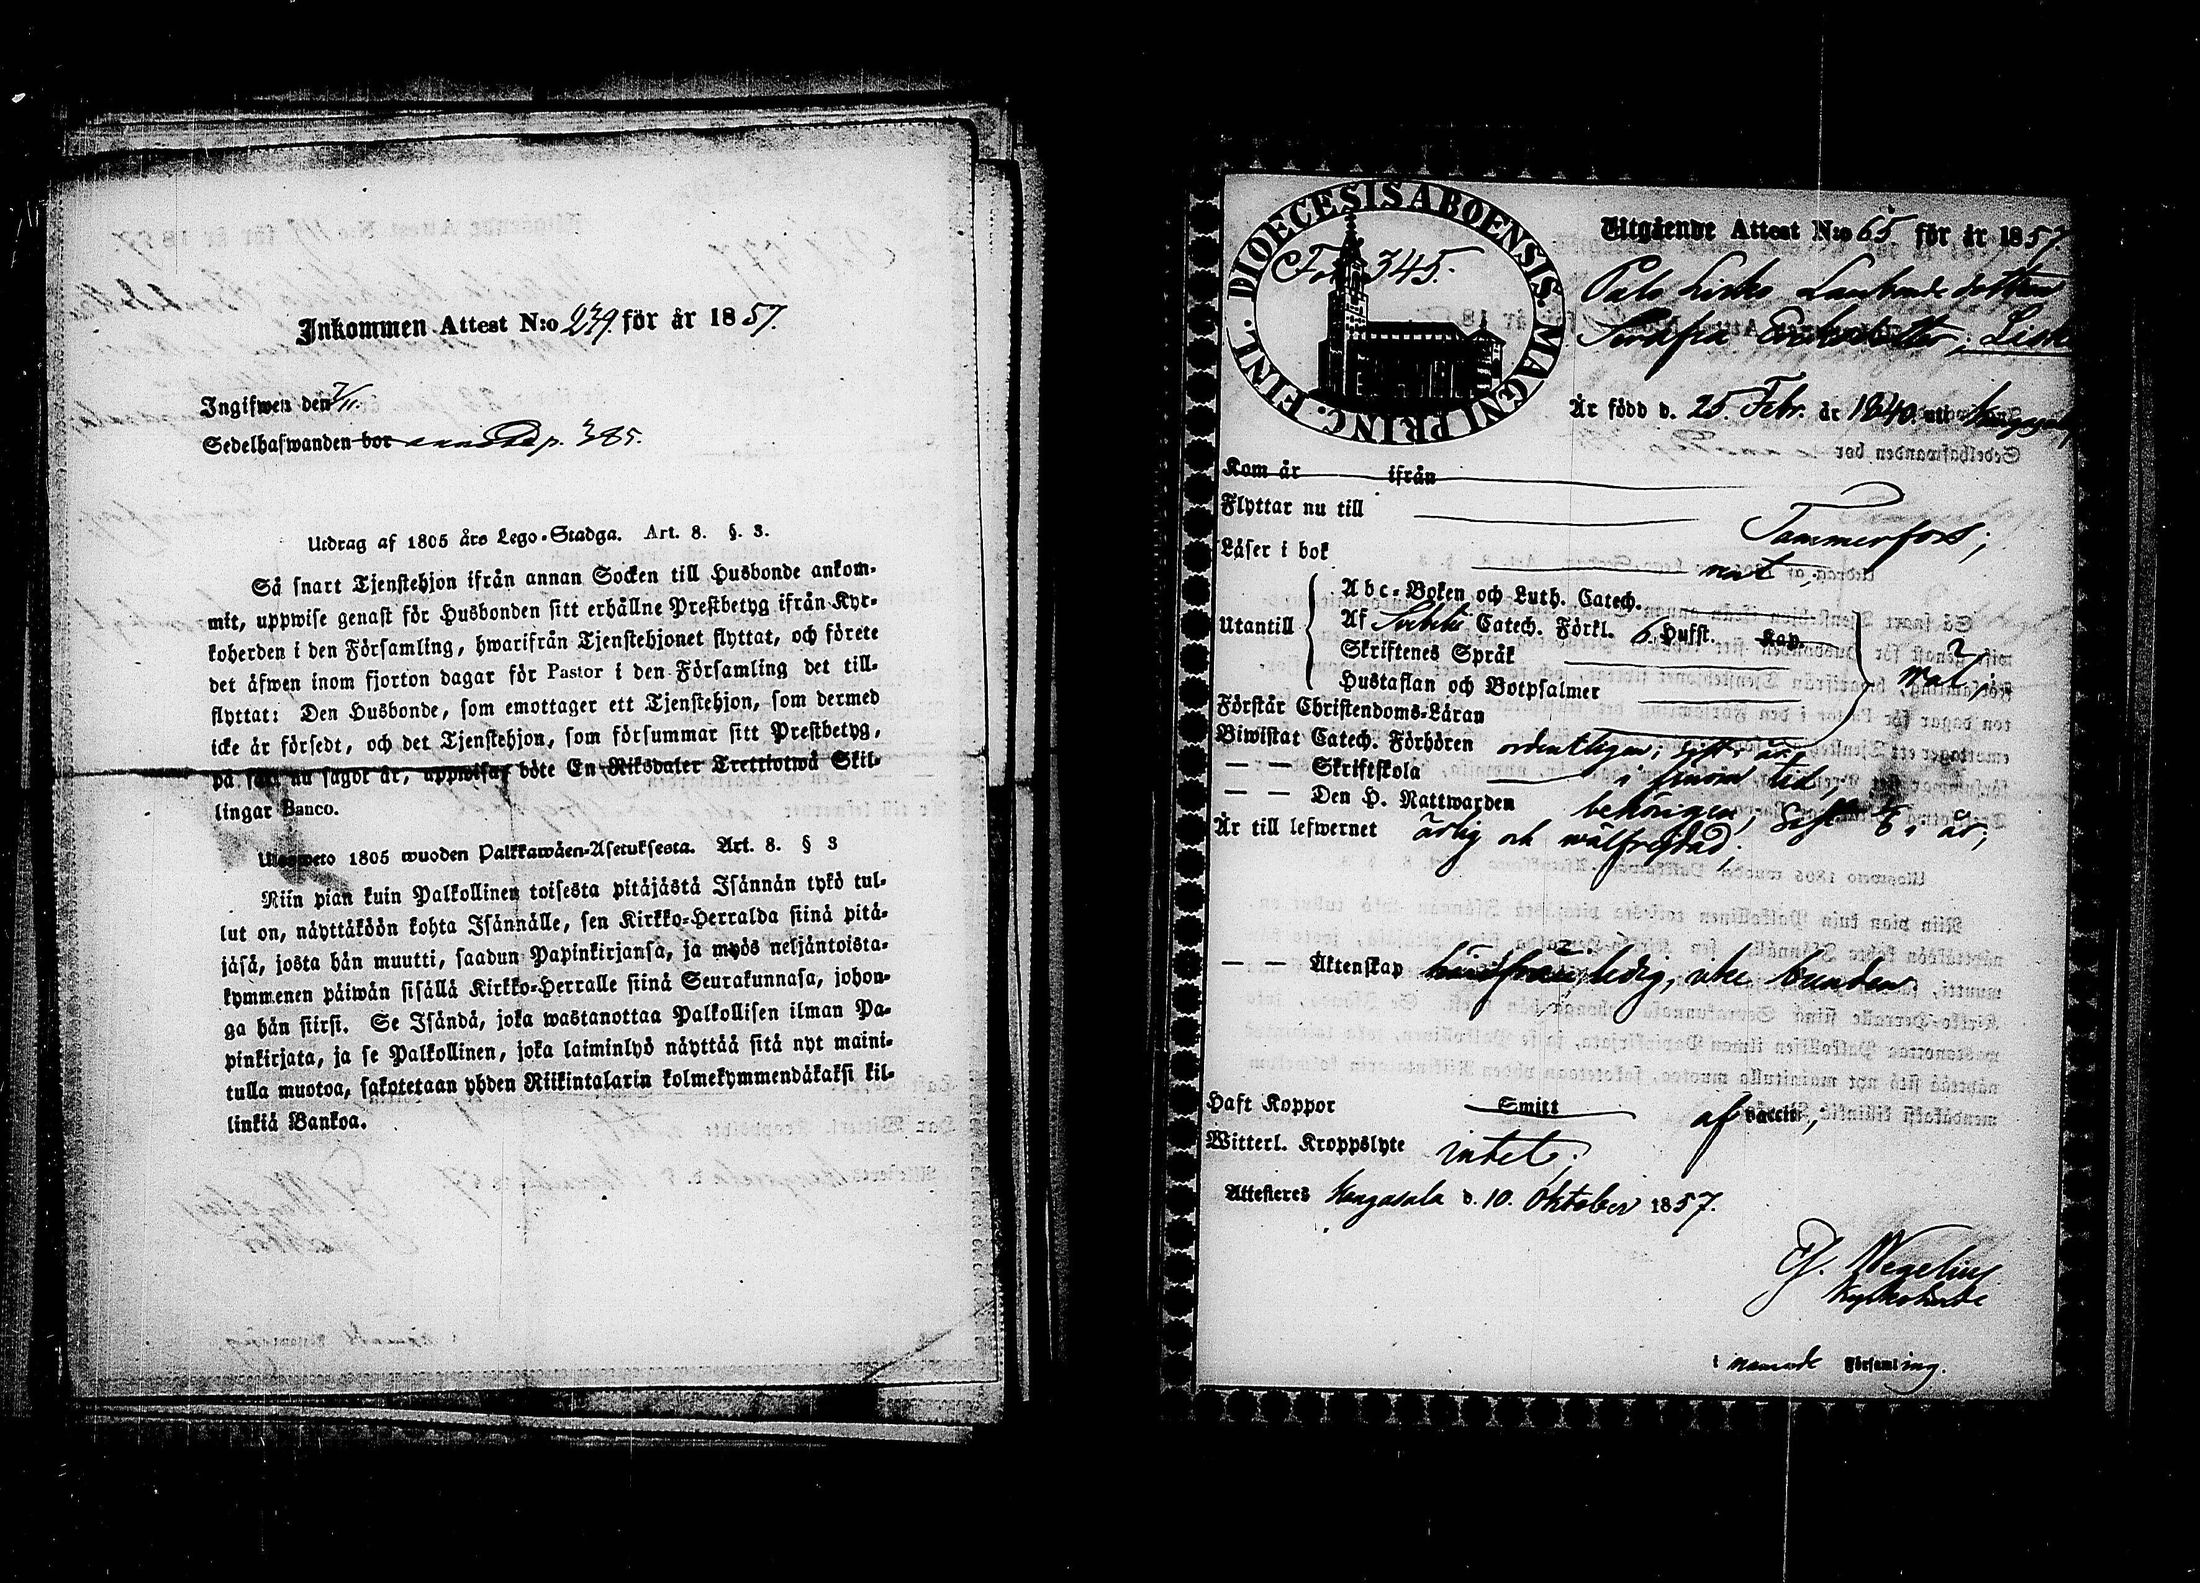 Inkommen Attest N:o 239. för år 1857.
Ingifwen den 7/11.
Sedelhafwanden bor p. 385.
Utdrag af 1805 års Lego-Stadga. Art. 8. §. 3.
Så snart Tjenstehjon ifrån annan Socken till Husbonde ankom-
mit, uppwise genast för Husbonden sitt erhållne Prestbetyg ifrån Kyr-
koherden i den Församling, hwarifrån Tjenstehjonet flyttat, och förete
det äfwen inom fjorton dagar för Pastor i den Församling det till-
flyttat: Den Husbonde, som emottager ett Tjenstehjon, som dermed
icke är försedt, och det Tjenstehjon, som försummar sitt Prestbetyg,
på sätt nu sagdt är, uppwisa, böte En Riksdaler Trettiotwå Skil-
lingar Banco.
Ulosweto 1805 wuoden Palkkawäen-Asetuksesta. Art. 8. § 3
Niin pian kuin Palkollinen toisesta pitäjästä Isännän tykö tul-
lut on, näyttäköön kohta Isännälle, sen Kirkko-Herralda siinä pitä-
jäsä, josta hän muutti, saadun Papinkirjansa, ja myös neljäntoista-
kymmenen päiwän sisällä Kirkko-Herralle siinä Seurakunnasa, johon-
ga hän siirsi. Se Isändä, joka wastanottaa Palkollisen ilman Pa-
pinkirjata, ja se Palkollinen, joka laiminlyö näyttää sitä nyt maini-
tulla muotoa, sakotetaan yhden Riikintalarin kolmekymmendäkaksi kil-
linkiä Bankoa.
DIOECESIS ABOENSIS. MAGNI PRINC. FINL.
Fol. 345.
Utgående Attest N:o 65. för år 1857
Serafia Eriksdotter, Liska
Är född d. 25. Febr. år 1840. uti Kangasala
Kom år ifrån
Flyttar nu till Tammerfors;
Läser i bok
Utantill
Abc-Boken och Luth. Catech.
Af Svebelii Catech. Förkl. 6. Hufst. Kap.
Skriftenes Språk
Hustaflan och Botpsalmer
Förstår Christendoms-Läran
Biwistat Catech. Förhören ordentligen; sist i år
— — Skriftskola i sinom tid;
— — Den H. Nattwarden behörigen; sist i år;
Är till lefwernet ärlig och wälfrejdad;
— — Äktenskap ledig, obunden.
Haft Koppor Smitt af vaccin;
Witterl. Kroppslyte intet;
Attesteres Kangasala d. 10. Oktober 1857.
Wegelius
Kyrkoherde
i nämnde Församling.